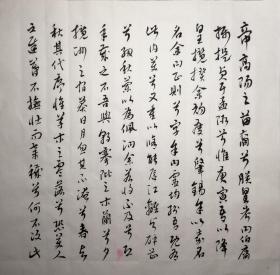 帝高陽之苗裔兮朕皇考曰伯庸
攝提貞于孟陬兮惟庚寅吾以降
皇攬揆余初度兮肇錫余以嘉名
名余曰正則兮字余曰靈均紛吾既有
此内美兮又重之以脩能扈江離與辟芷
兮紉秋蘭以為佩汩余若將不及兮恐
年歲之不吾與朝搴阰之木蘭兮夕
攬洲之宿莽日月忽其不淹兮春與
秋其代序惟草木之零落兮恐美人
之遲暮不撫壯而棄穢兮何不改此